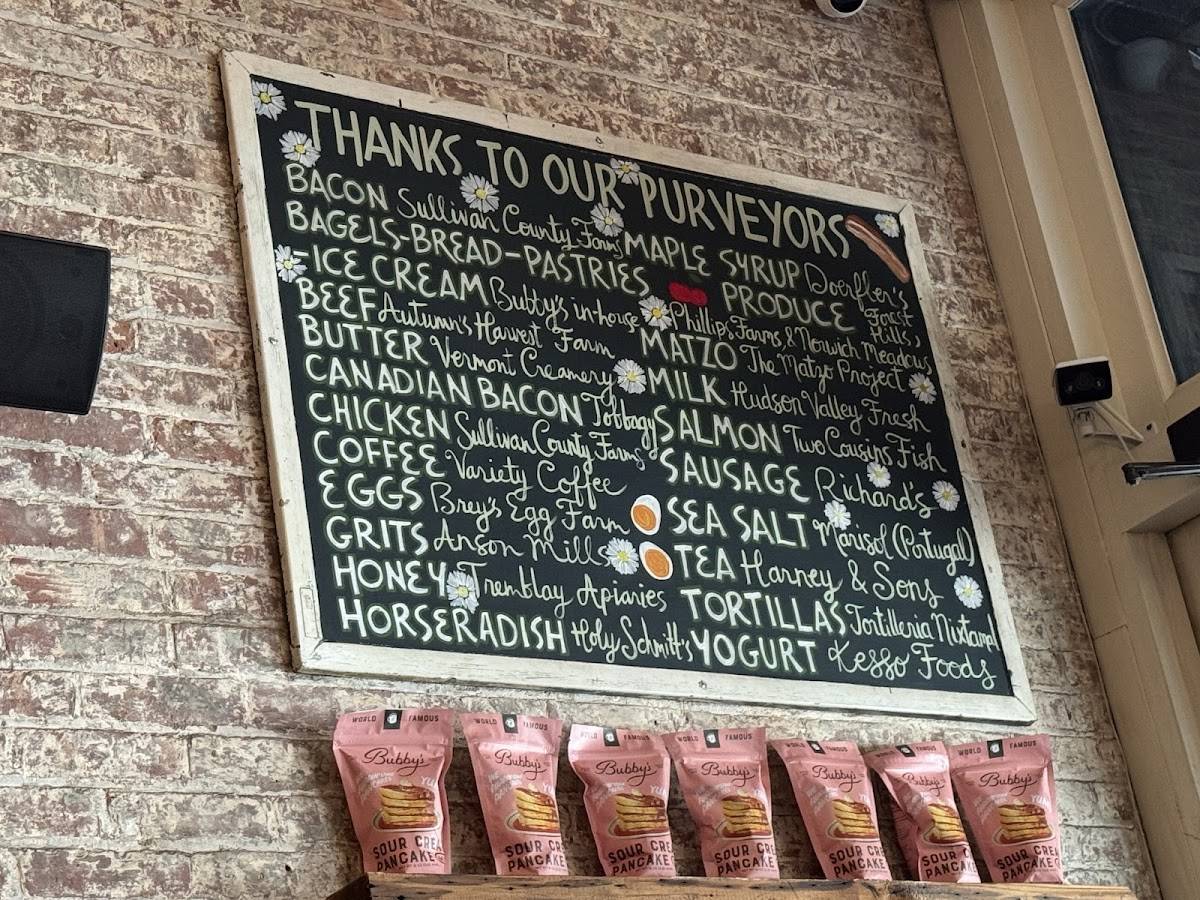 THANKS TO OUR PURVEYORS
BACON Sullivan County Farms
BAGELS-BREAD-PASTRIES
-ICE CREAM Bubby's in-house
BEEF Autumn's Harvest Farm
BUTTER Vermont Creamery
CANADIAN BACON Tobbagy
CHICKEN Sullivan County Farms
COFFEE Variety Coffee
EGGS Brey's Egg Farm
GRITS Anson Mills
HONEY Tremblay Apiaries
HORSERADISH Holy Schmitt's
MAPLE SYRUP Doerfler's
PRODUCE Forest Hills,
Phillips Farms, & Norwich Meadows
MATZO The Matzo Project
MILK Hudson Valley Fresh
SALMON Two Cousins Fish
SAUSAGE Richard's
SEA SALT Marisol (Portugal)
TEA Harney & Sons
TORTILLAS Tortilleria Nixtamal
YOGURT Kesso Foods
WORLD FAMOUS
Bubby's
SOUR CREA
PANCAKE
WORLD FAMOUS
Bubby's
SOUR CRE
PANCAKE
WORLD FAMOUS
Bubby's
SOUR CREA
PANCAKE
WORLD FAMOUS
Bubby's
SOUR CREA
PANCAKE
WORLD FAMOUS
Bubby's
SOUR CRE
PANCAKE
WORLD FAMOUS
Bubby's
SOUR CREA
PANCAKE
WORLD FAMOUS
Bubby's
SOUR CREA
PANCAKE